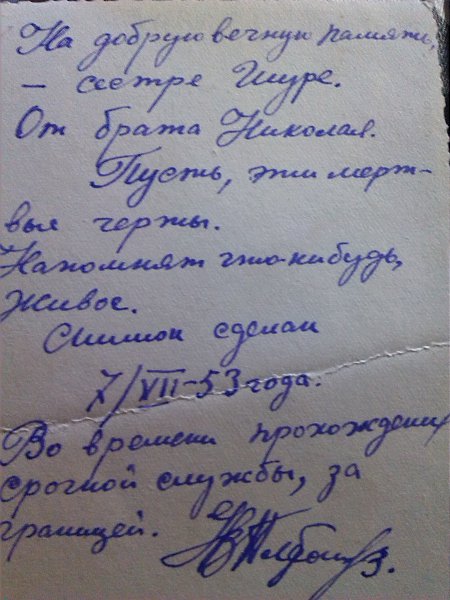 На добрую вечную память,
— сестре Шуре.
От брата Николая.
Пусть, эти мерт-
вые черты.
Напомнят что-нибудь,
живое.
Снимок сделан
7/VII-53 года.
Во время прохождения
срочной службы, за
границей.